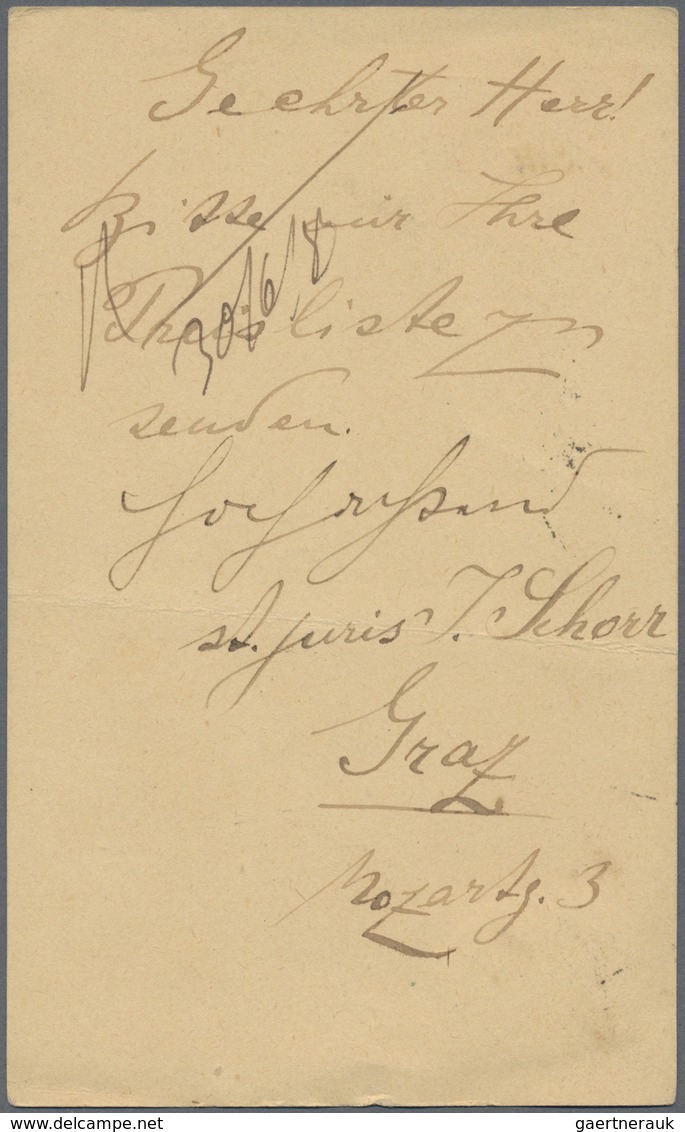 Geehrter Herr!
Bitte mir Ihre
Preisliste zu
30/6/8
senden.
Hochachtend
st. juris J. Schorr
Graz
Mozartg. 3
delcampe.net
gaertnerauk